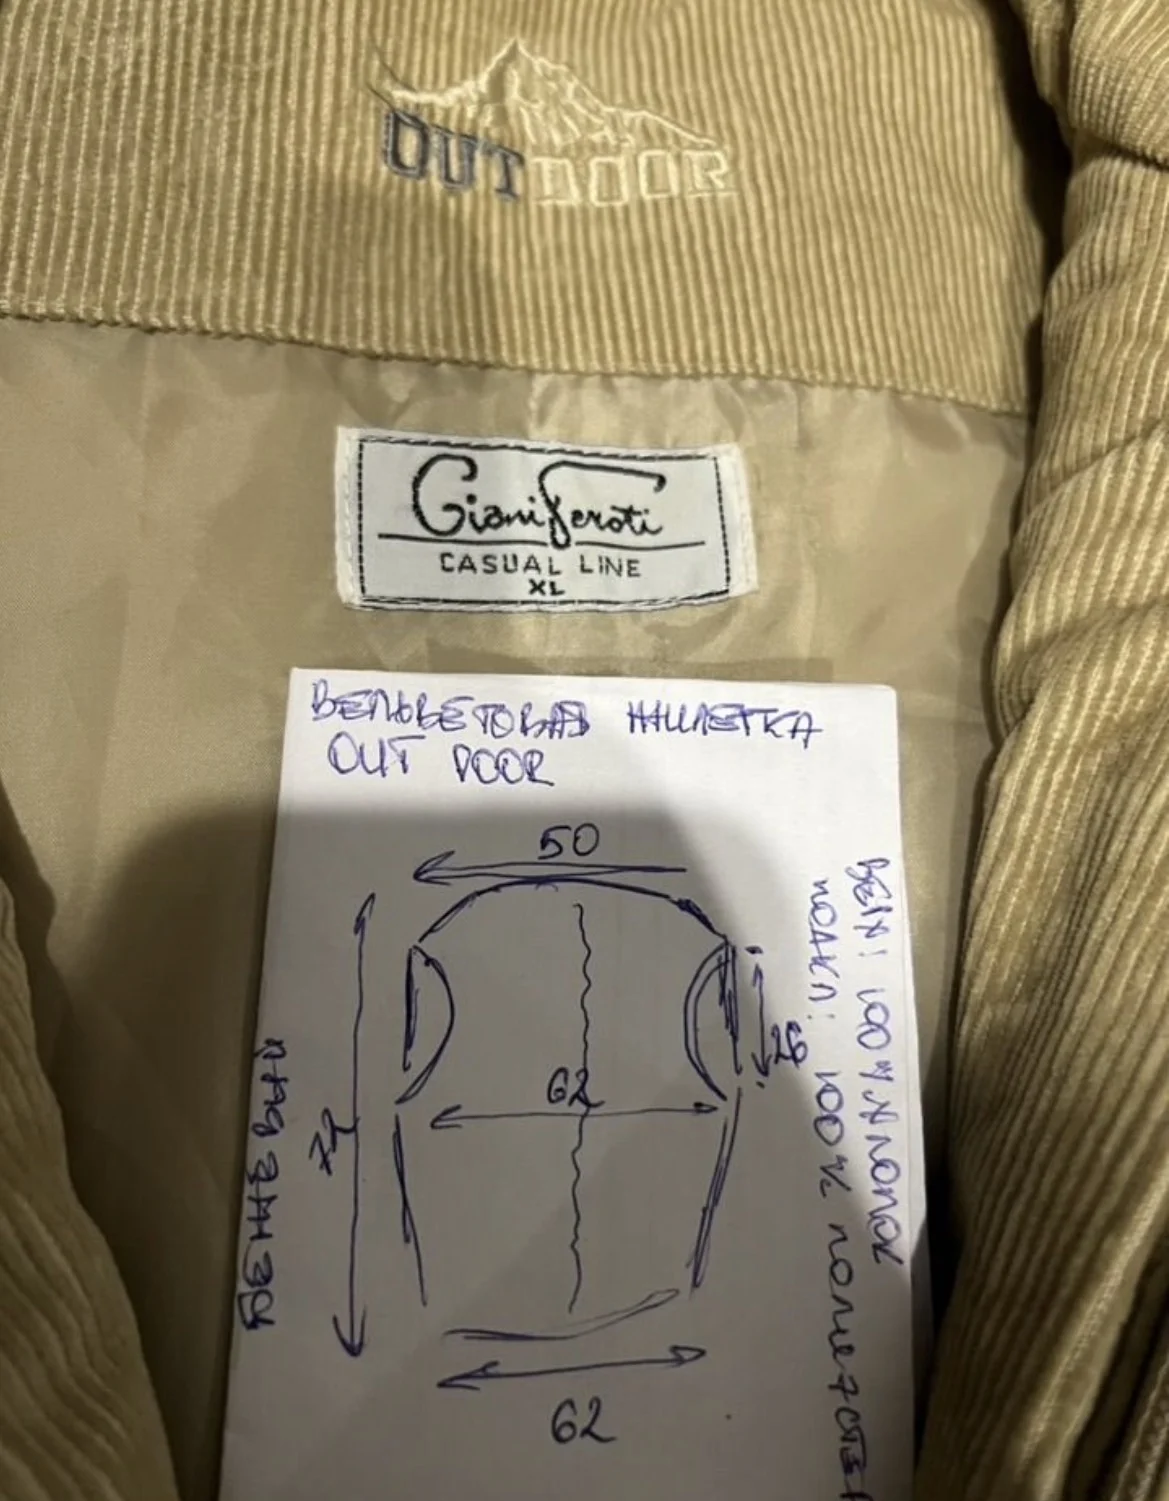 OUTDOOR
Giani Feroti
CASUAL LINE
XL
ВЕЛЬВЕТОВАЯ ЖИЛЕТКА
OUT DOOR
50
ВЕЛ: 100% ХЛОПОК
ПОДКЛ: 100% ПОЛИЭСТЕР
29
62
72
62